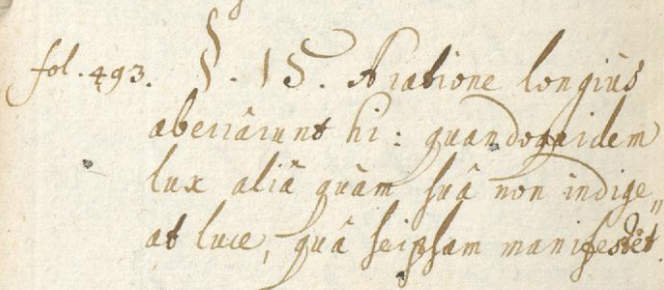 fol. 493. §. 15. A ratione longiùs
aberrârunt hi: quandoquidem
lux aliâ quàm suâ non indige„
at luce, quâ seipsam manifestet.